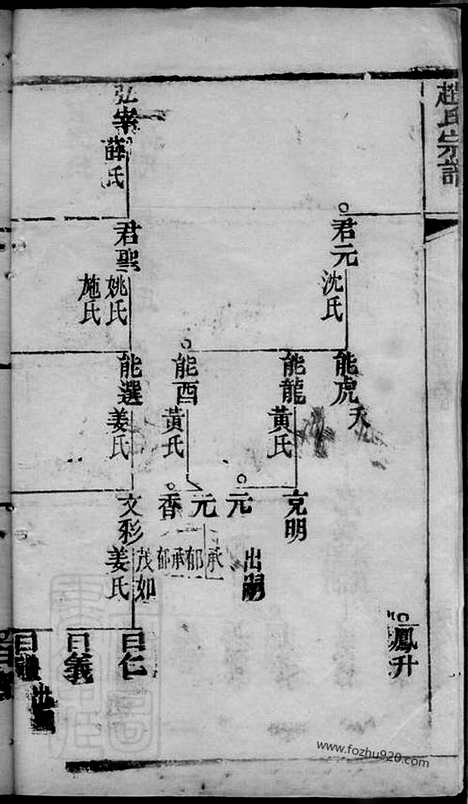 趙氏宗譜
君元
沈氏
弘業
薛氏
君聖
姚氏
施氏
能虎
夭
能龍
黃氏
能酉
黃氏
能選
姜氏
克明
元
出嗣
元
承郁
香
承郁
文彩
茂如
姜氏
鳳升
曰仁
曰義
曰
出
www.fozhu920.com